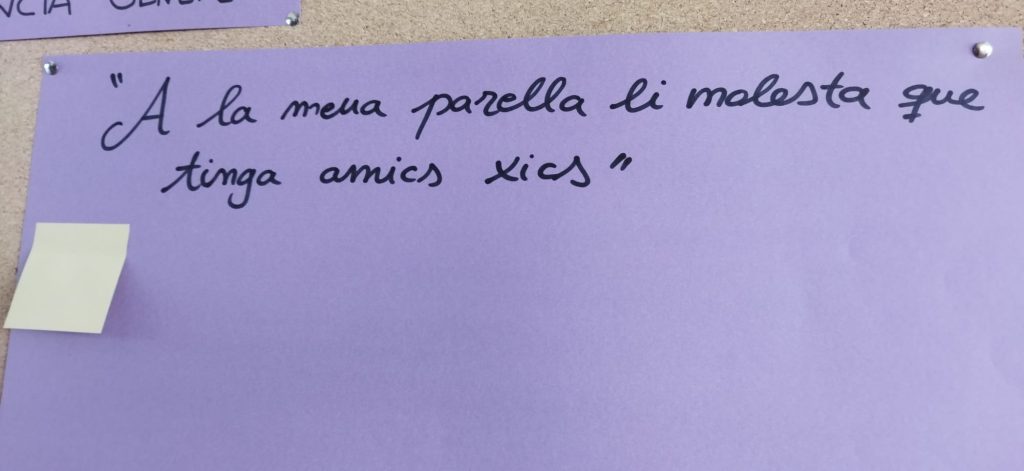 "A la meua parella li molesta que
tinga amics xics"